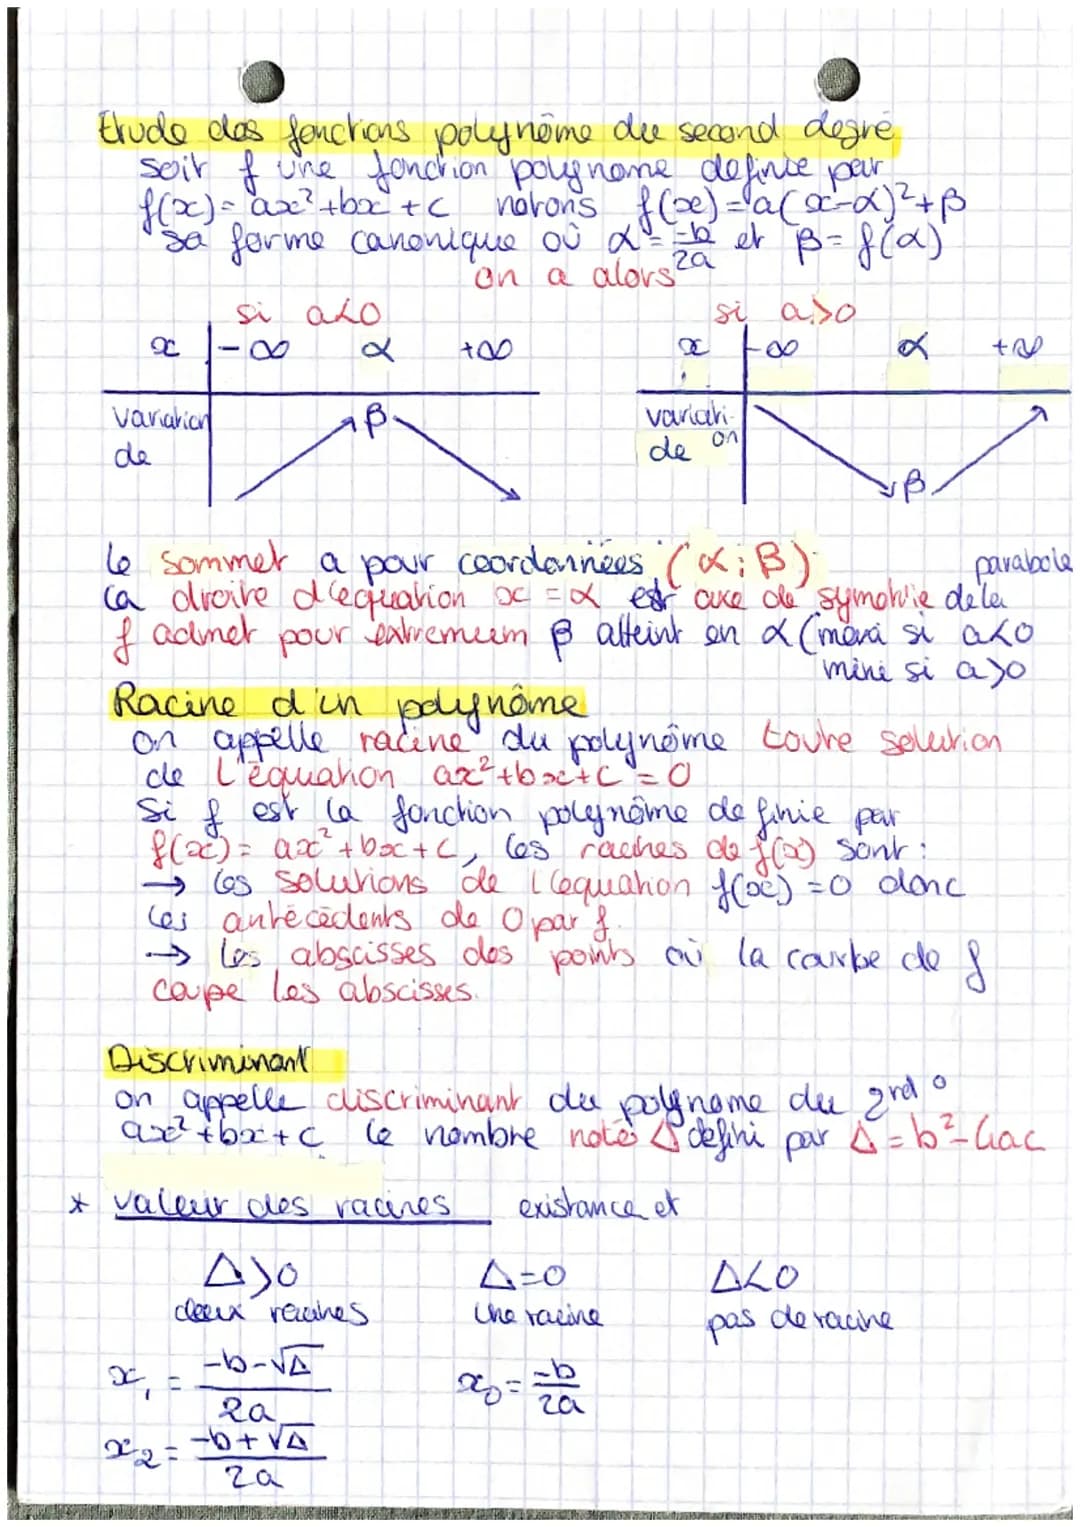 Etude des fonctions polynôme du second degré
soit f une fonction polynome definie par
f(x) = ax²+bx+c notons f(x) = a(x-α)²+β
sa forme canonique où α = -b/2a et β = f(α)
on a alors
si a<0 si a>0
x -∞ α +∞ x -∞ α +∞
variation β variati-
de on
de β
le sommet a pour coordonnées (α; β)
parabole
la droite d'equation x = α est axe de symétrie de la
f admet pour extremum β atteint en α (maxi si a<0
mini si a>0
Racine d'un polynôme
on appelle racine du polynôme toute solution
de l'équation ax²+bx+c = 0
Si f est la fonction polynôme definie par
f(x) = ax²+bx+c, les racines de f(x) sont :
→ les solutions de l'equation f(x) = 0 donc
les antécédents de 0 par f.
→ les abscisses des points où la courbe de f
coupe les abscisses.
Discriminant
on appelle discriminant du polynome du 2nd °
ax²+bx+c le nombre noté Δ défini par Δ = b²-4ac
* valeur des racines existance et
Δ>0 Δ=0 Δ<0
deux racines une racine pas de racine
x₁ = -b-√Δ/2a x₀ = -b/2a
x₂ = -b+√Δ/2a